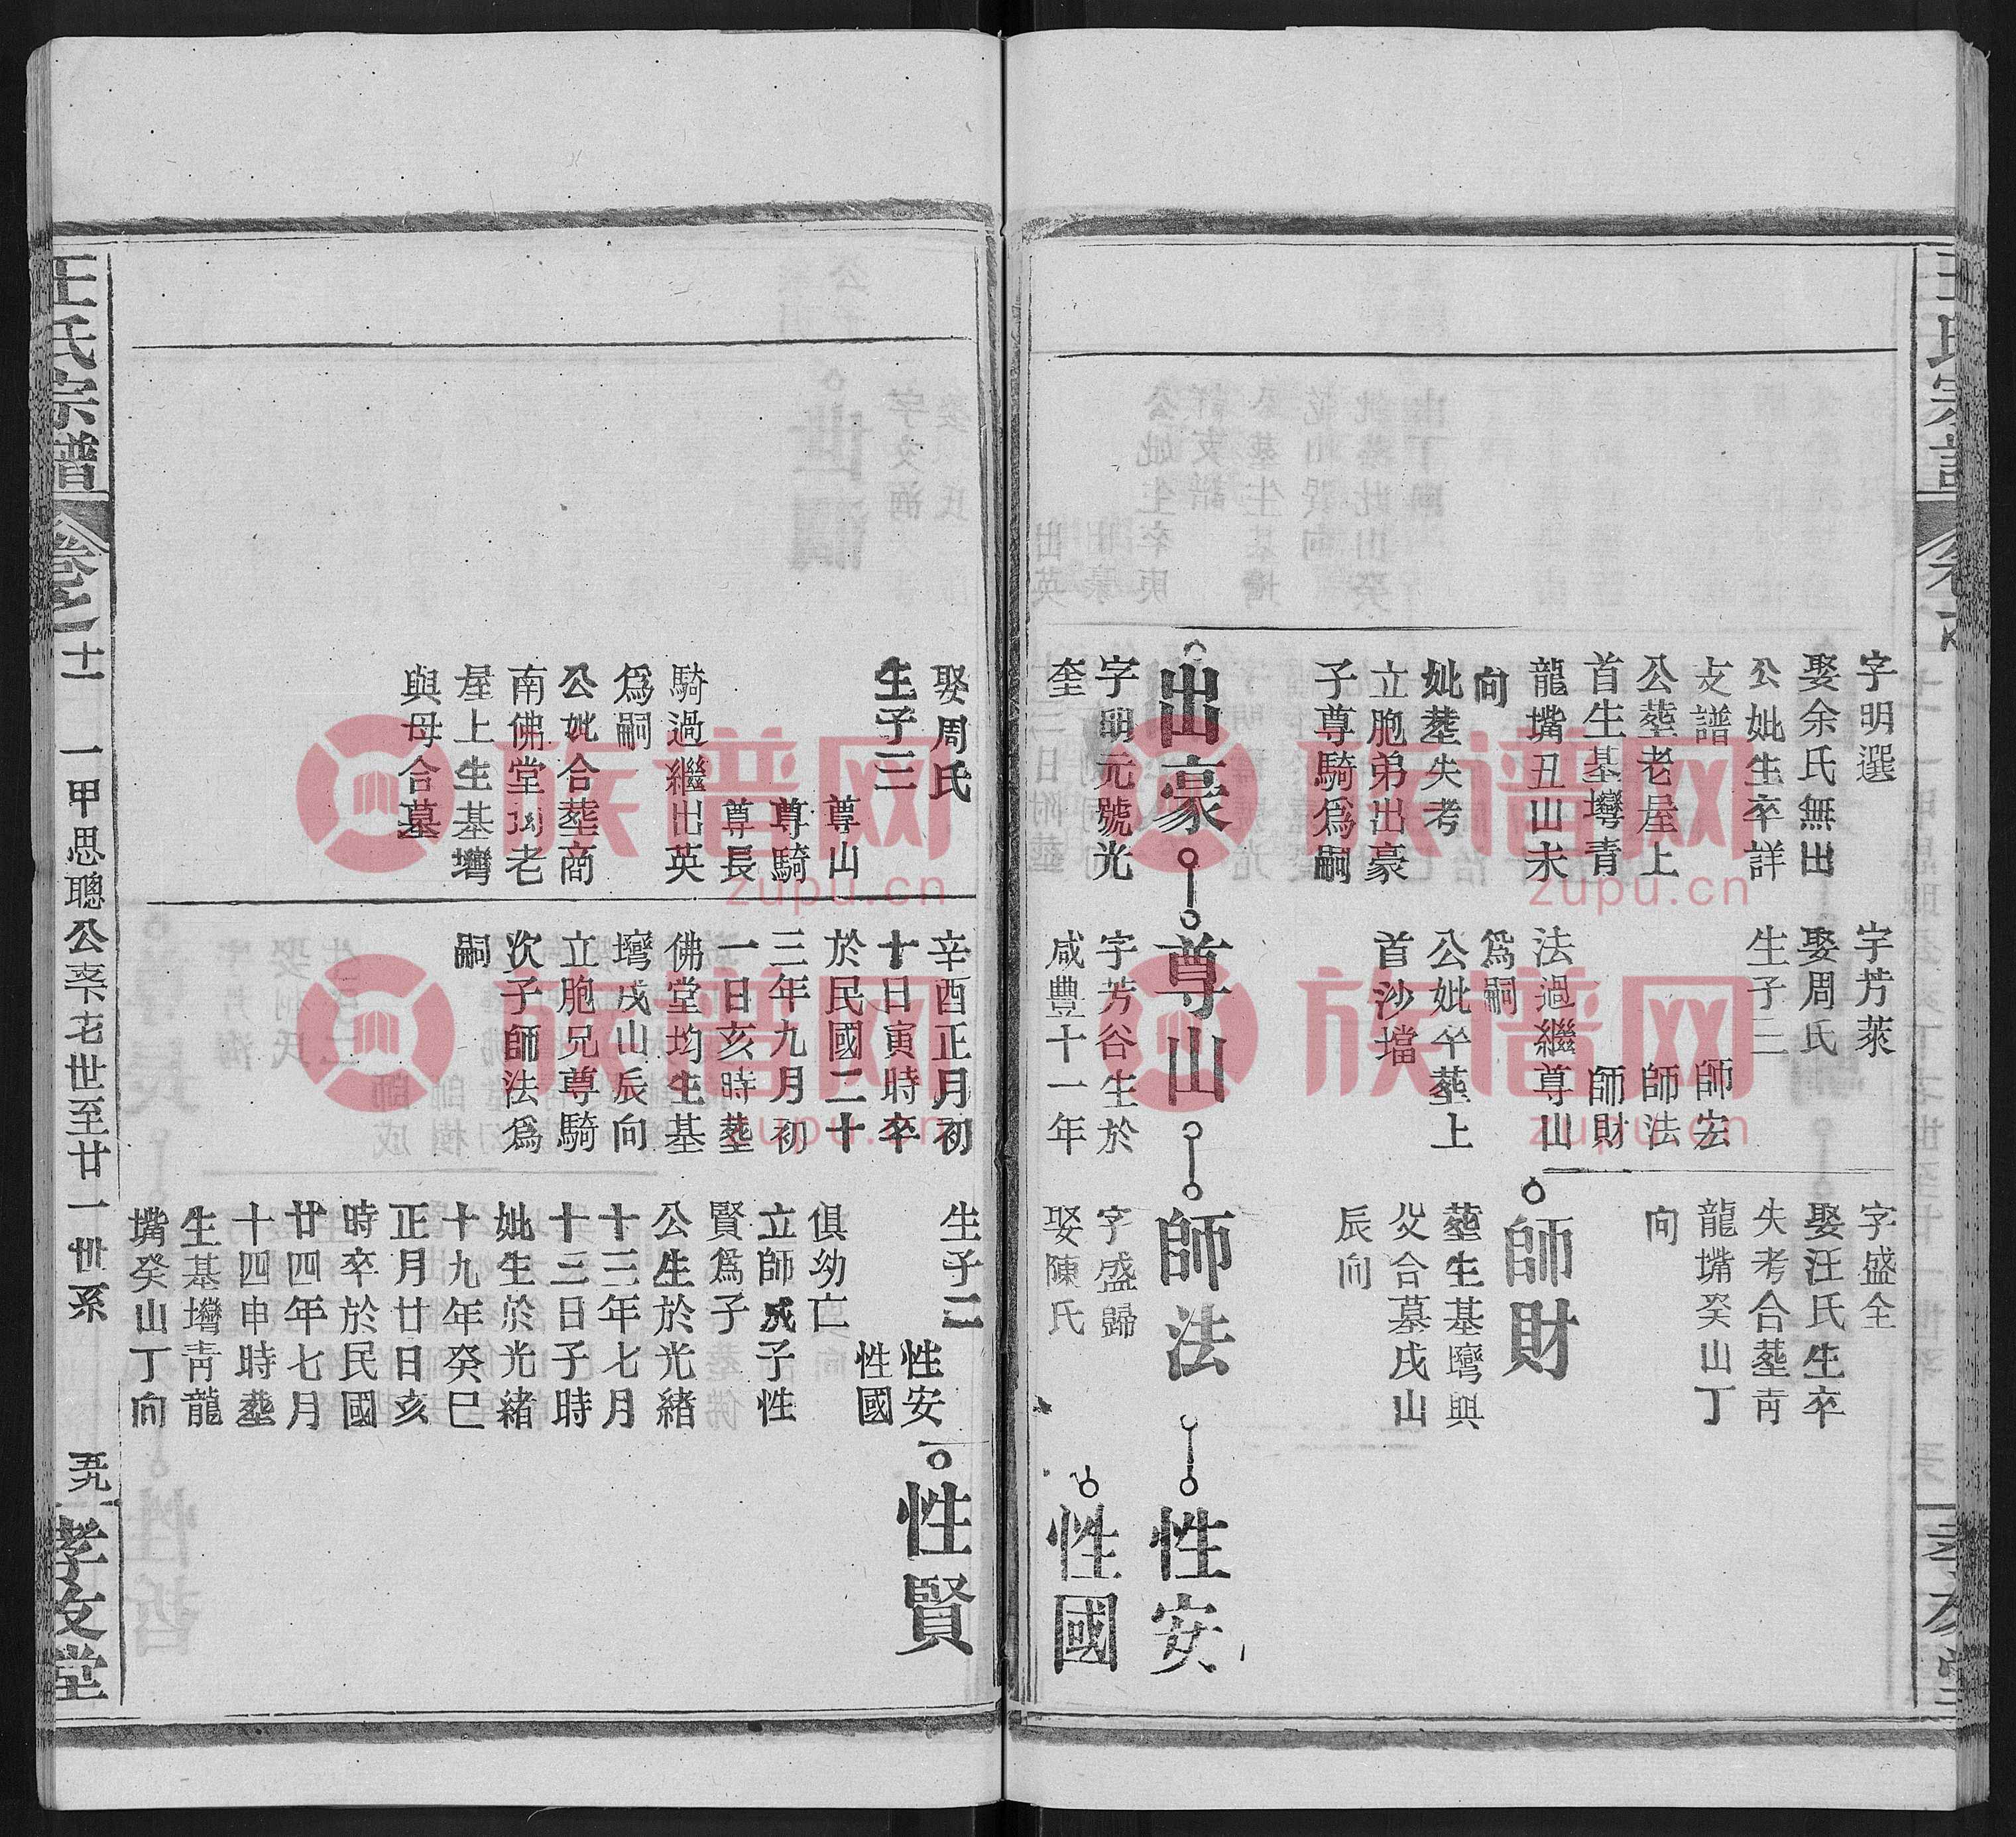 字明選
娶余氏無出
公妣生卒詳
攴譜
公塟老屋上
首生基壪青
龍嘴丑山未
向
妣塟失考
立胞弟出豪
子尊騎爲嗣
出豪
字明元號光
奎
字芳萊
娶周氏
生子三
師宏
師法
師財
法過繼尊山
爲嗣
公妣卒塟上
首沙壋
尊山
字芳谷生於
咸豐十一年
字盛全
娶汪氏生卒
失考合塟青
龍嘴癸山丁
向
師財
塟生基壪與
父合墓戌山
辰向
師法
字盛歸
娶陳氏
性安
性國
娶周氏
生子三
尊山
尊騎
尊長
騎過繼出英
爲嗣
公妣合塟商
南佛堂坳老
屋上生基壪
與母合墓
辛酉正月初
十日寅時卒
於民國二十
三年九月初
一日亥時塟
佛堂均生基
壪戌山辰向
立胞兄尊騎
次子師法爲
嗣
生子二
性安
性國
俱幼亡
立師成子性
賢爲子
公生於光緒
十三年七月
十三日子時
妣生於光緒
十九年癸巳
正月廿日亥
時卒於民國
廿四年七月
十四申時塟
生基壪青龍
嘴癸山丁向
性賢
王氏宗譜
卷之十一
一甲思聰公
世至廿一世系
孝友堂
族谱网
zupu.cn
族谱网
zupu.cn
族谱网
zupu.cn
族谱网
zupu.cn